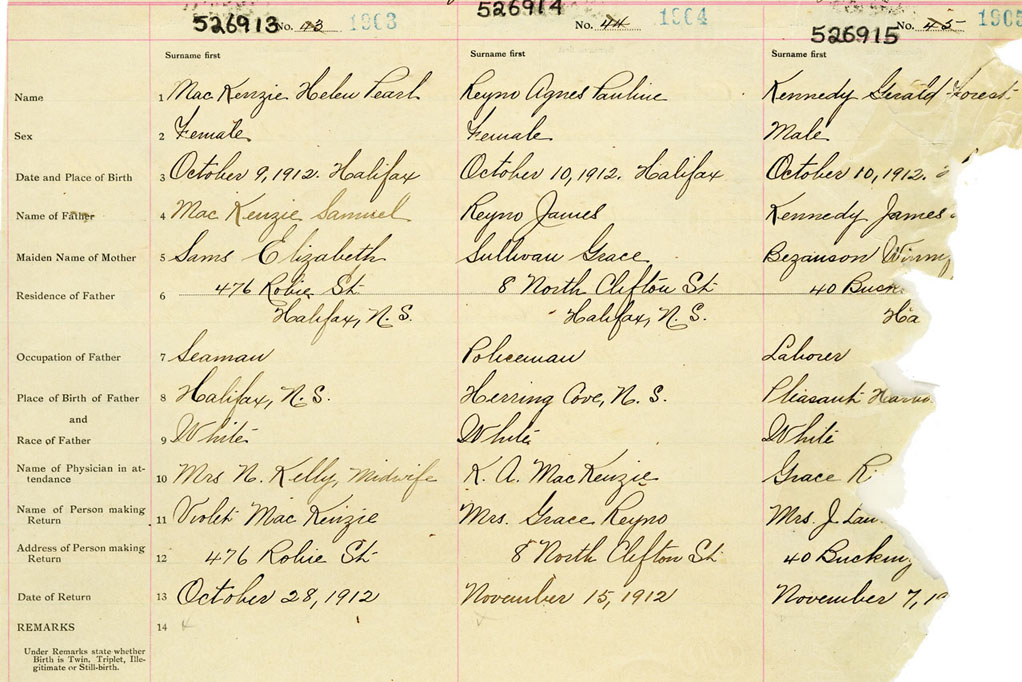 526913 No. 43 1903 526914 No. 44 1904 526915 No. 45 1905
Surname first Surname first Surname first
Name 1 Mac Kenzie Helen Pearl Reyno Agnes Pauline Kennedy Gerald Forest
Sex 2 Female Female Male
Date and Place of Birth 3 October 9, 1912. Halifax October 10, 1912. Halifax October 10, 1912.
Name of Father 4 Mac Kenzie Samuel Reyno James Kennedy James
Maiden Name of Mother 5 Sams Elizabeth Sullivan Grace Bezanson
Residence of Father 6 476 Robie St 8 North Clifton St 40 Buck
Halifax, N.S. Halifax, N.S. Ha
Occupation of Father 7 Seaman Policeman Laborer
Place of Birth of Father 8 Halifax, N.S. Herring Cove, N.S. Pleasant
and
Race of Father 9 White White White
Name of Physician in at-
tendance 10 Mrs N. Kelly, Midwife K. A. MacKenzie Grace R
Name of Person making
Return 11 Violet Mac Kenzie Mrs. Grace Reyno Mrs. J
Address of Person making
Return 12 476 Robie St 8 North Clifton St 40 Bucking
Date of Return 13 October 28, 1912 November 15, 1912 November 7, 19
REMARKS 14
Under Remarks state whether
Birth is Twin, Triplet, Ille-
gitimate or Still-birth.